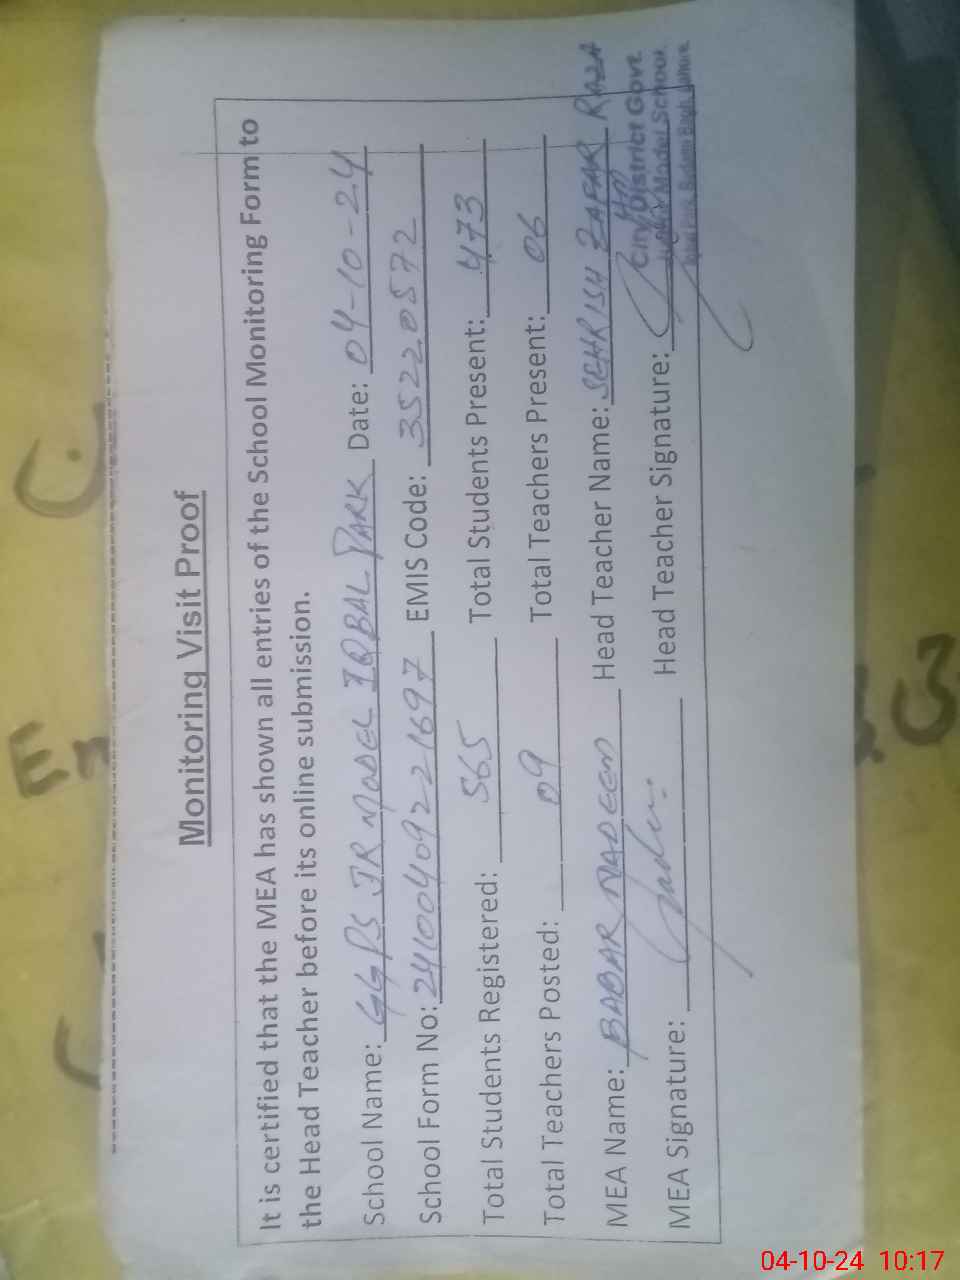 Monitoring Visit Proof
It is certified that the MEA has shown all entries of the School Monitoring Form to
the Head Teacher before its online submission.
School Name: GGPS JR MODEL IQBAL PARK Date: 04-10-24
School Form No: 24100409221697 EMIS Code: 35220572
Total Students Registered: 565 Total Students Present: 473
Total Teachers Posted: 09 Total Teachers Present: 06
MEA Name: BABAR NADEEM Head Teacher Name: SEHRISH ZAFAR RAZA
MEA Signature: Head Teacher Signature:
City District Govt.
Model School
Badami Bagh Lahore
04-10-24 10:17